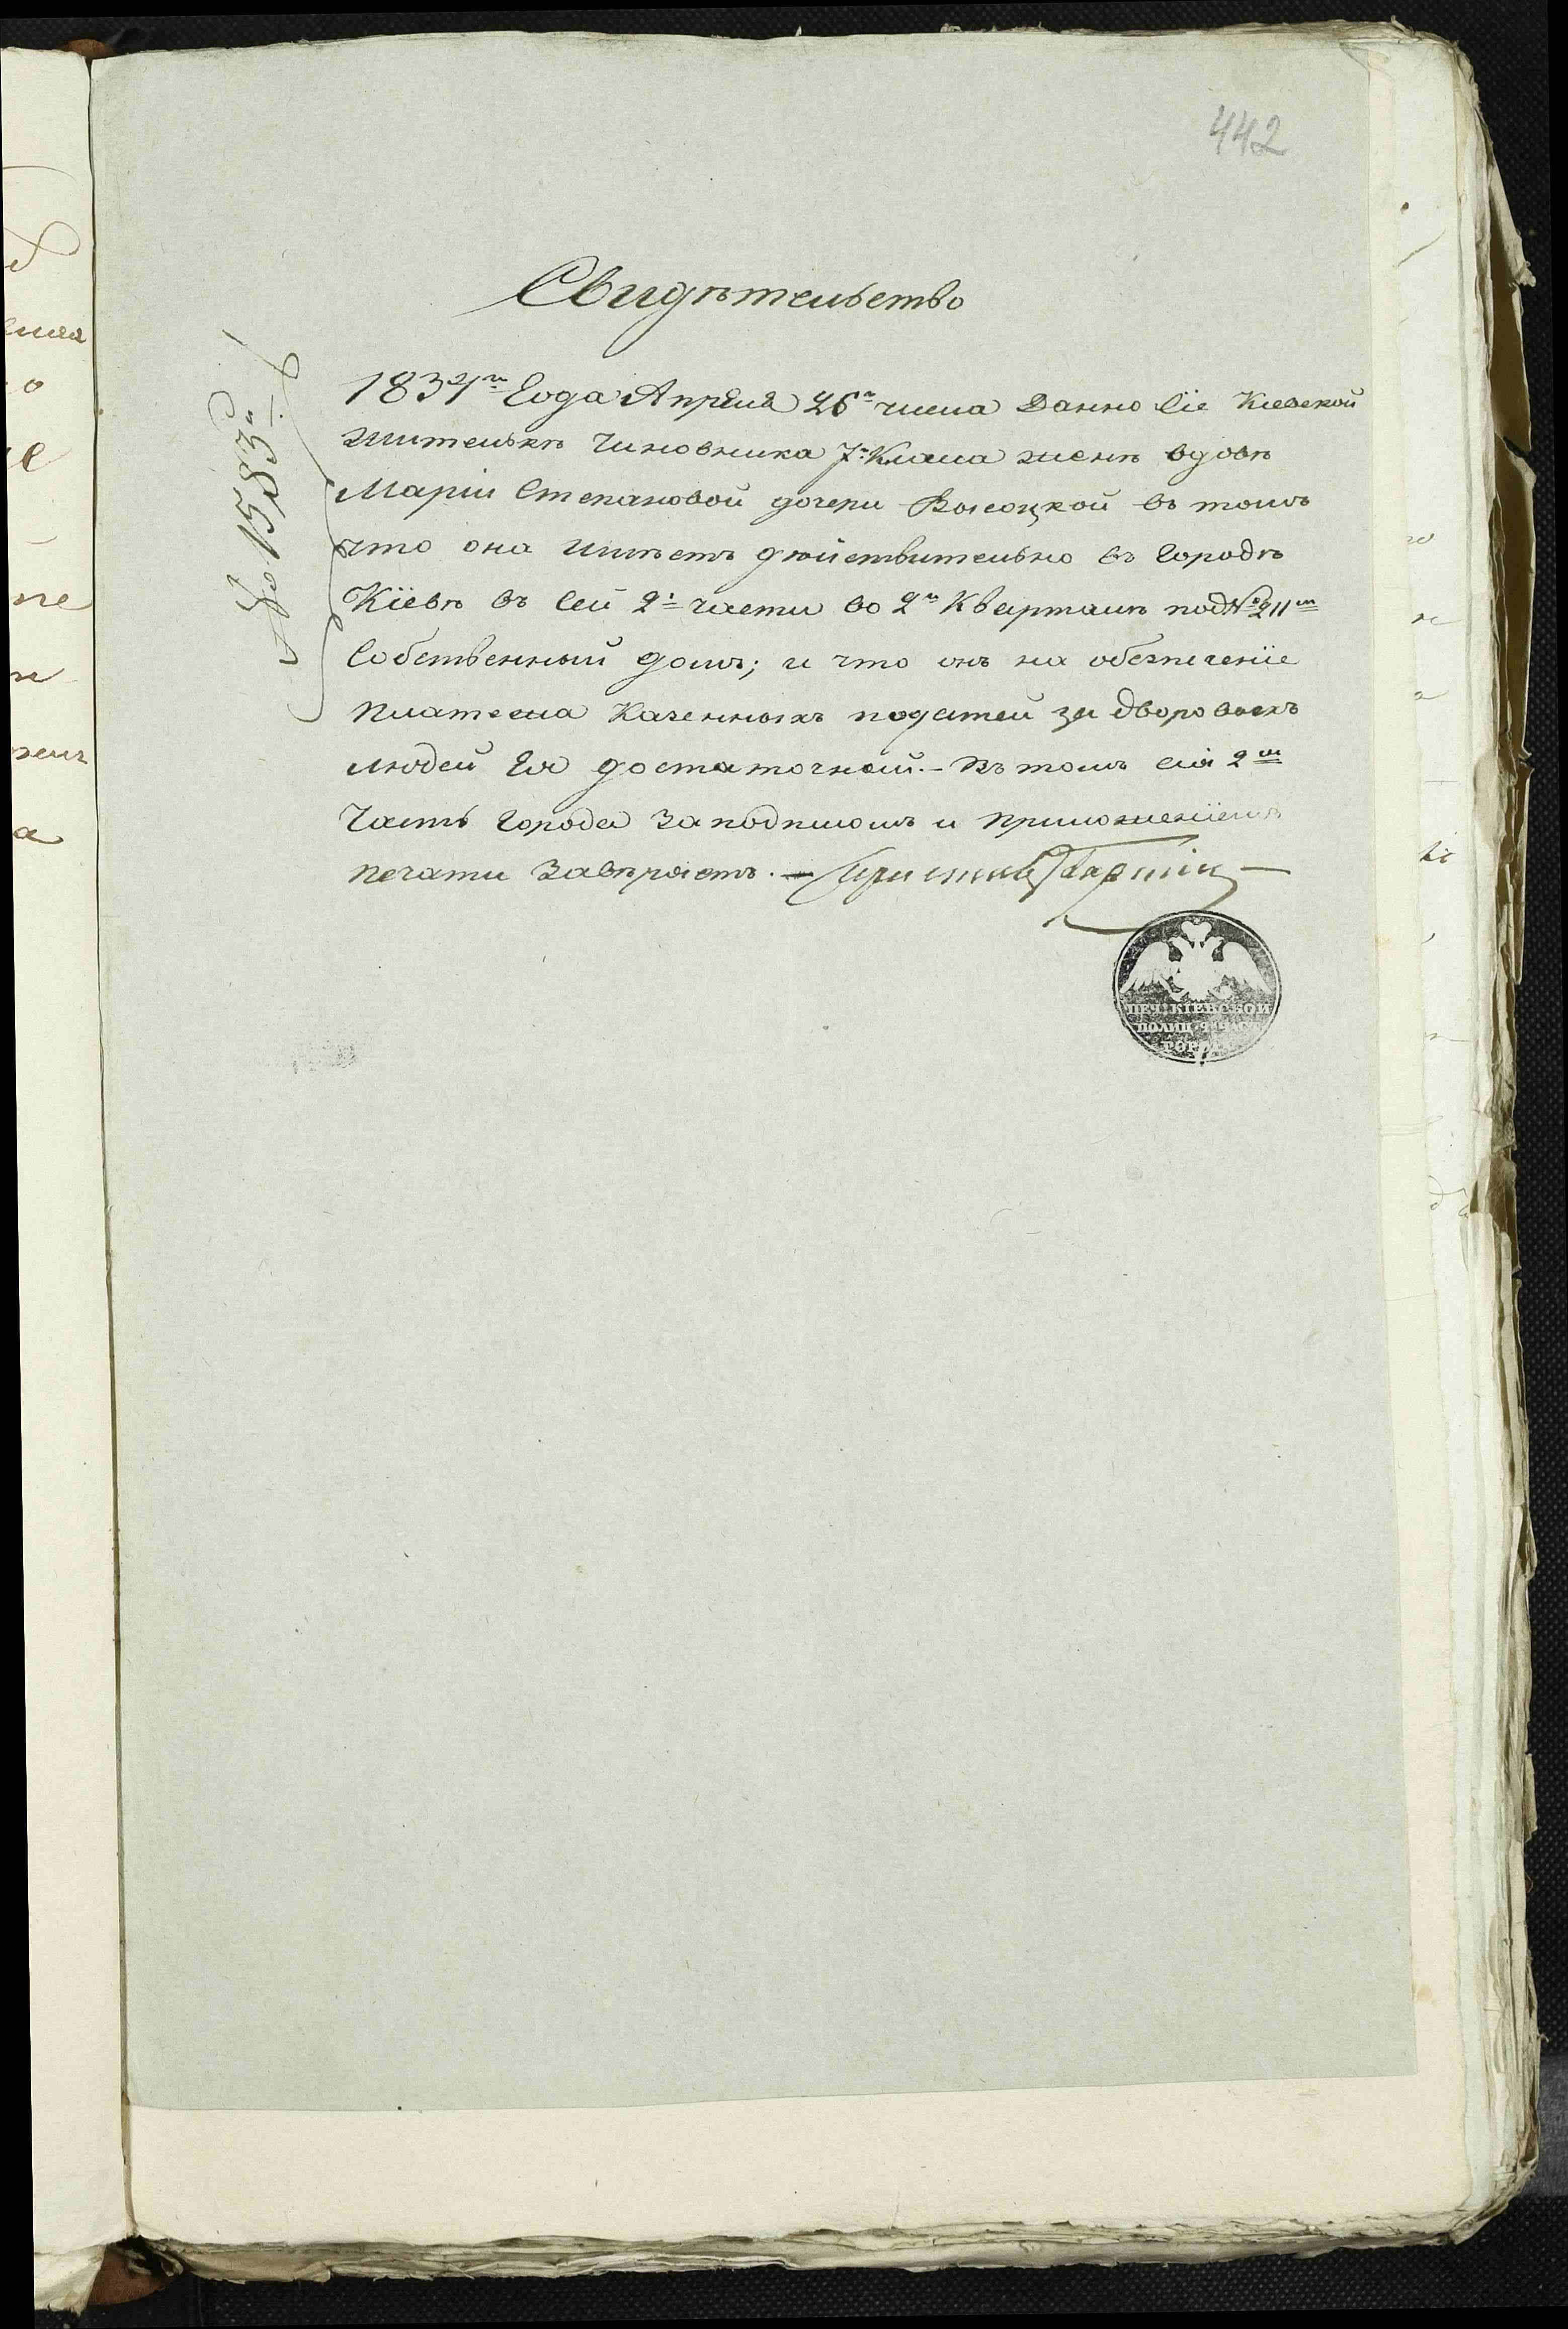 442
Свидѣтельство
№ 1583й
1834го Года Апреля 26го числа Данно сіе Кіевской
жителькѣ Чиновника 7го Класа женѣ вдовѣ
Маріи Степановой дочери Высоцкой въ томъ
что она имѣетъ дѣйствительно въ городѣ
Кіевѣ въ сей 2й части во 2м Кварталѣ под №211м
собственный домъ; и что онъ на обезпеченіе
платежа Казенныхъ податей за дворовыхъ
людей Ея достаточной.- Въ томъ сія 2я
Часть города За подписомъ и приложеніемъ
печати Завѣряетъ. — Приставъ
ПЕЧ: КІЕВСКОЙ
ПОЛИЦ. 2 ЧАС
ГОРО